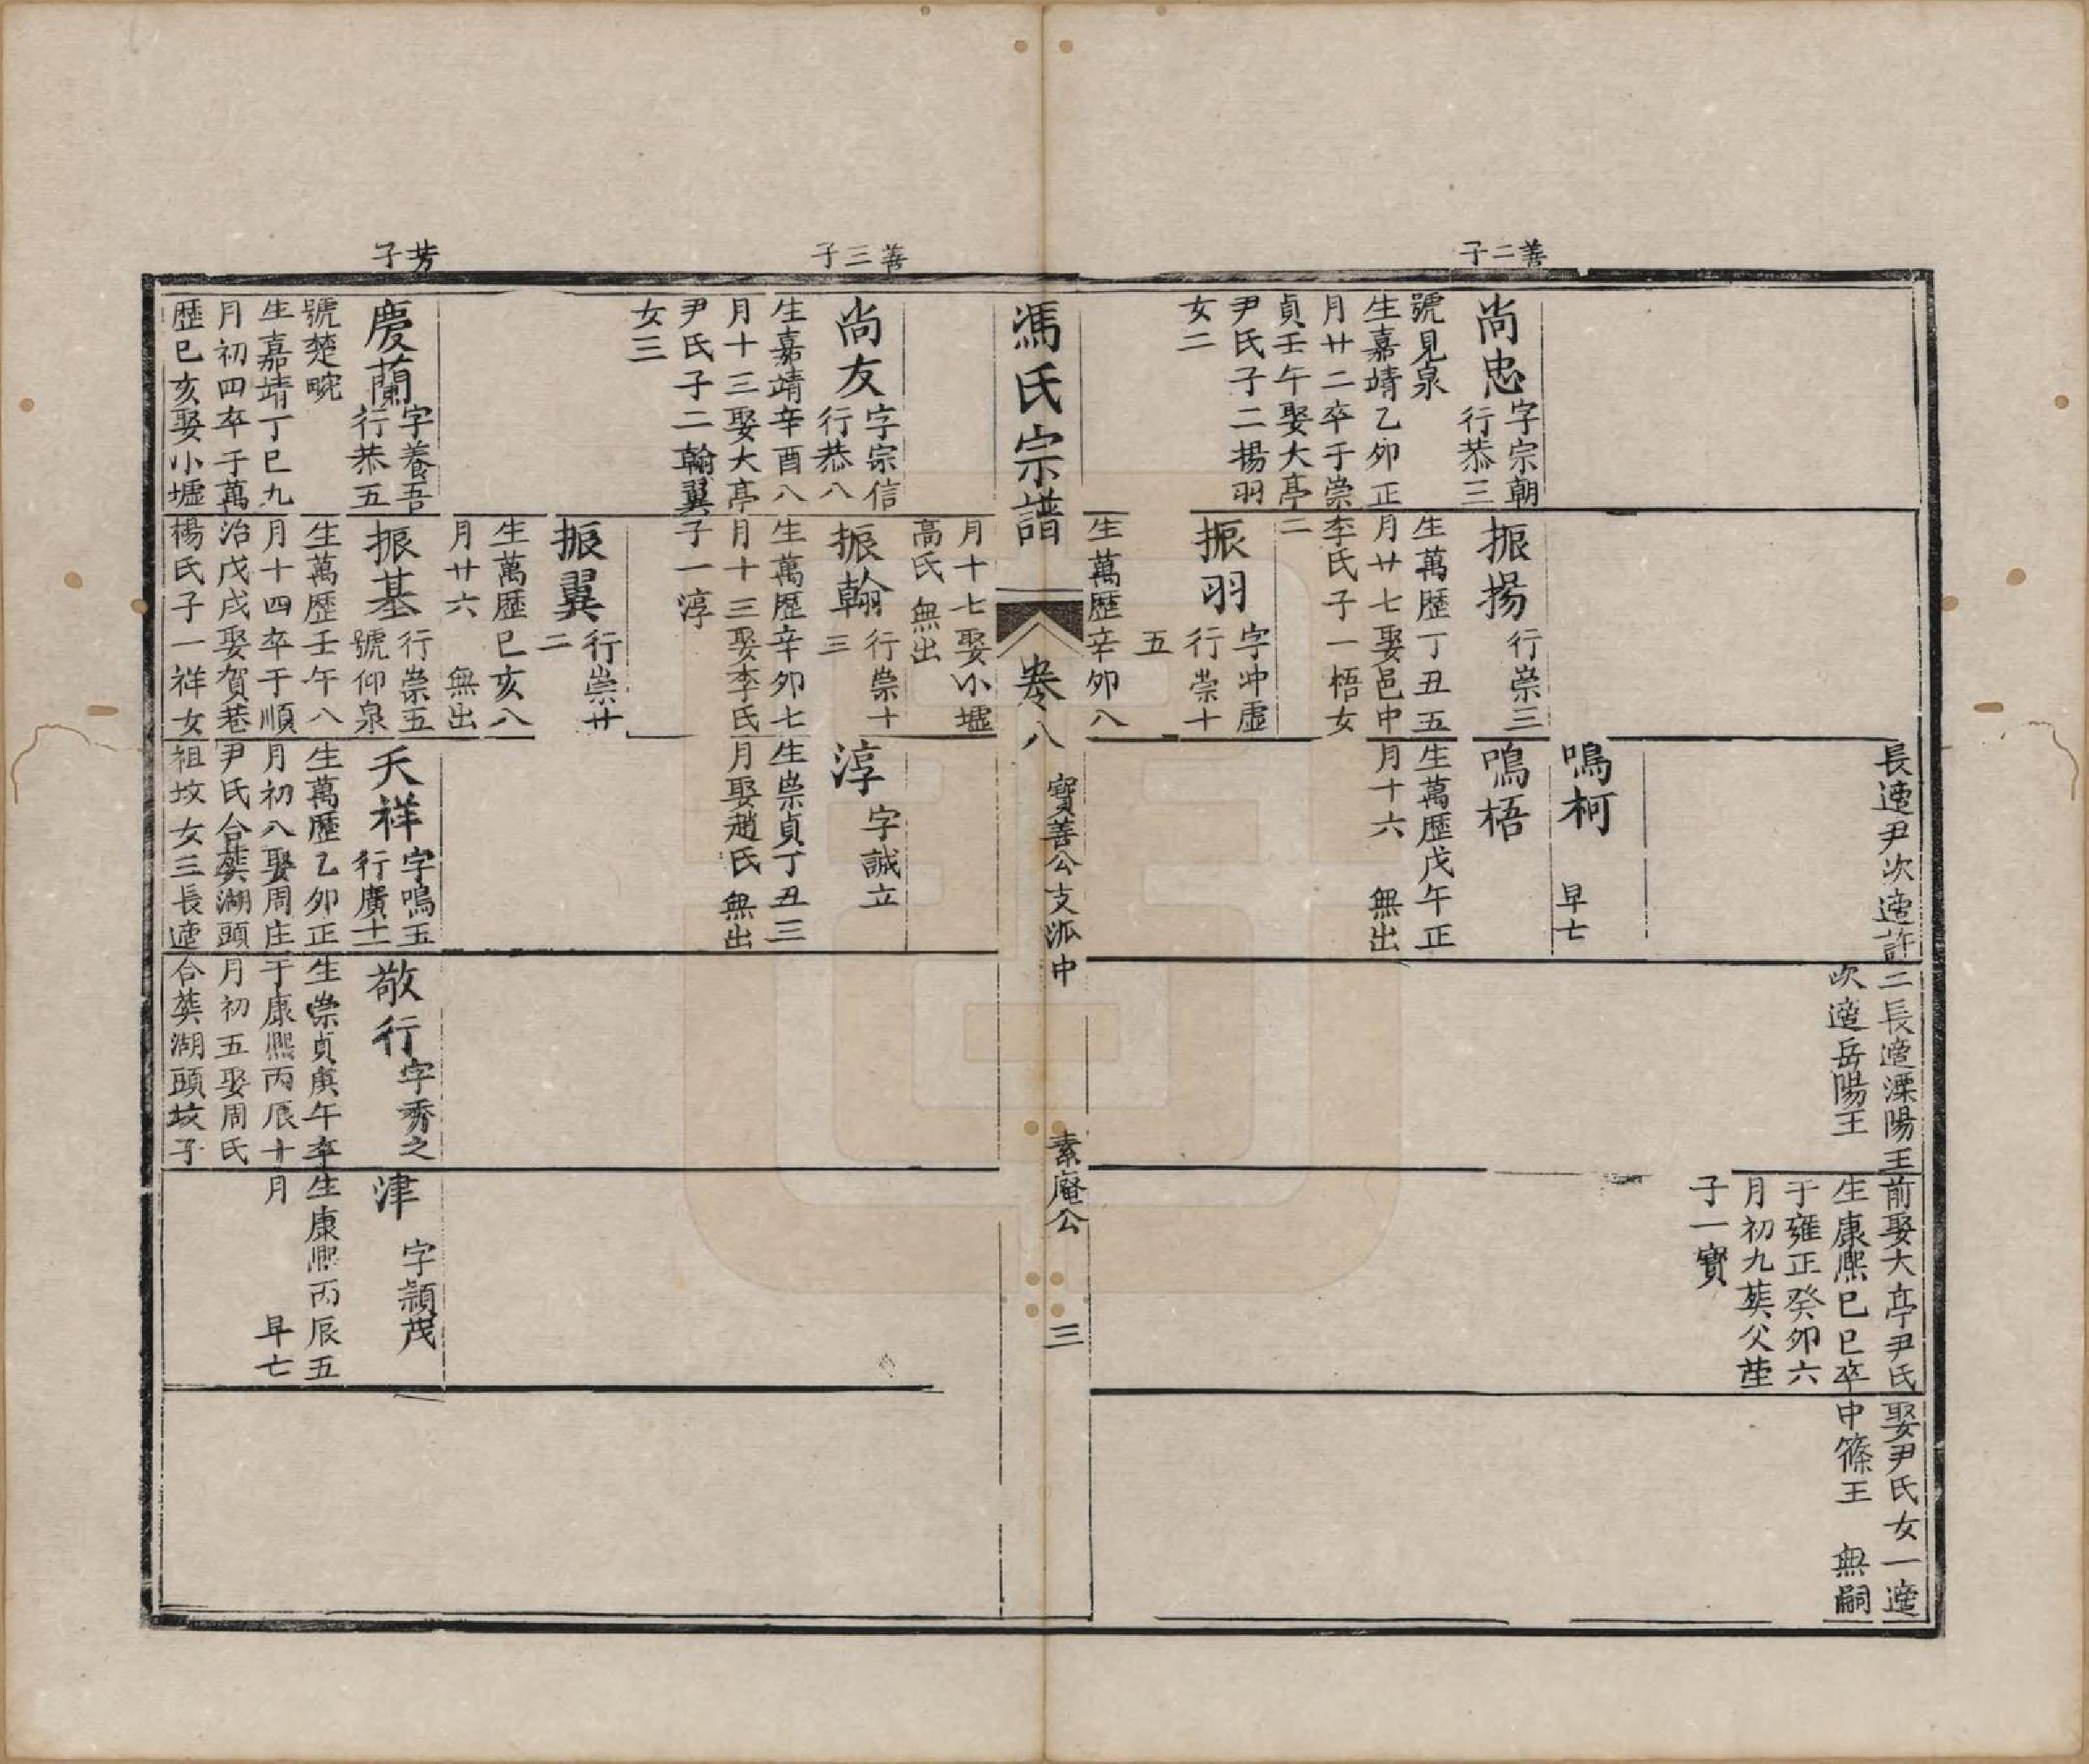 善二子
善三子
芳子
尚忠
字宗朝
行恭三
號見泉
生嘉靖乙卯正
月廿二卒于崇
貞壬午娶大亭
尹氏子二揚羽
女二
振揚
行崇三
生萬歷丁丑五
月廿七娶邑中
李氏子一梧女
二
振羽
字冲虛
行崇十
五
生萬歷辛卯八
長適尹次適許
鳴柯
早亡
鳴梧
生萬歷戊午正
月十六 無出
二長適溧陽王
次適岳陽王
前娶大亭尹氏
生康熙己巳卒
于雍正癸卯六
月初九葬父塋
子一寶
娶尹氏女一適
中篠王 無嗣
馮氏宗譜
卷八
寶善公支派中
素庵公
三
尚友
字宗信
行恭八
生嘉靖辛酉八
月十三娶大亭
尹氏子二翰翼
女三
月十七娶小墟
高氏 無出
振翰
行崇十
三
生萬歷辛卯七
月十三娶李氏
子一淳
振翼
行崇廿
二
生萬歷己亥八
月廿六 無出
淳
字誠立
生崇貞丁丑三
月娶趙氏 無出
慶蘭
字養吾
行恭五
號楚畹
生嘉靖丁巳九
月初四卒于萬
歷己亥娶小墟
振基
行崇五
號仰泉
生萬歷壬午八
月十四卒于順
治戊戌娶賀巷
楊氏子一祥女
天祥
字鳴玉
行廣十一
生萬歷乙卯正
月初八娶周庄
尹氏合葬湖頭
祖坟女三長適
敬行
字秀之
生崇貞庚午卒
于康熙丙辰十
月初五娶周氏
合葬湖頭坟子
津
字穎茂
生康熙丙辰五
月 早亡